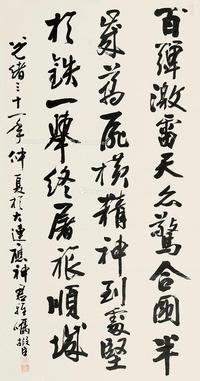 百彈激雷天亦驚合圍半
歲萬屍橫精神到處堅
於鉄一舉終屠旅順城
光緒三十一年仲夏於大連應神君雅囑